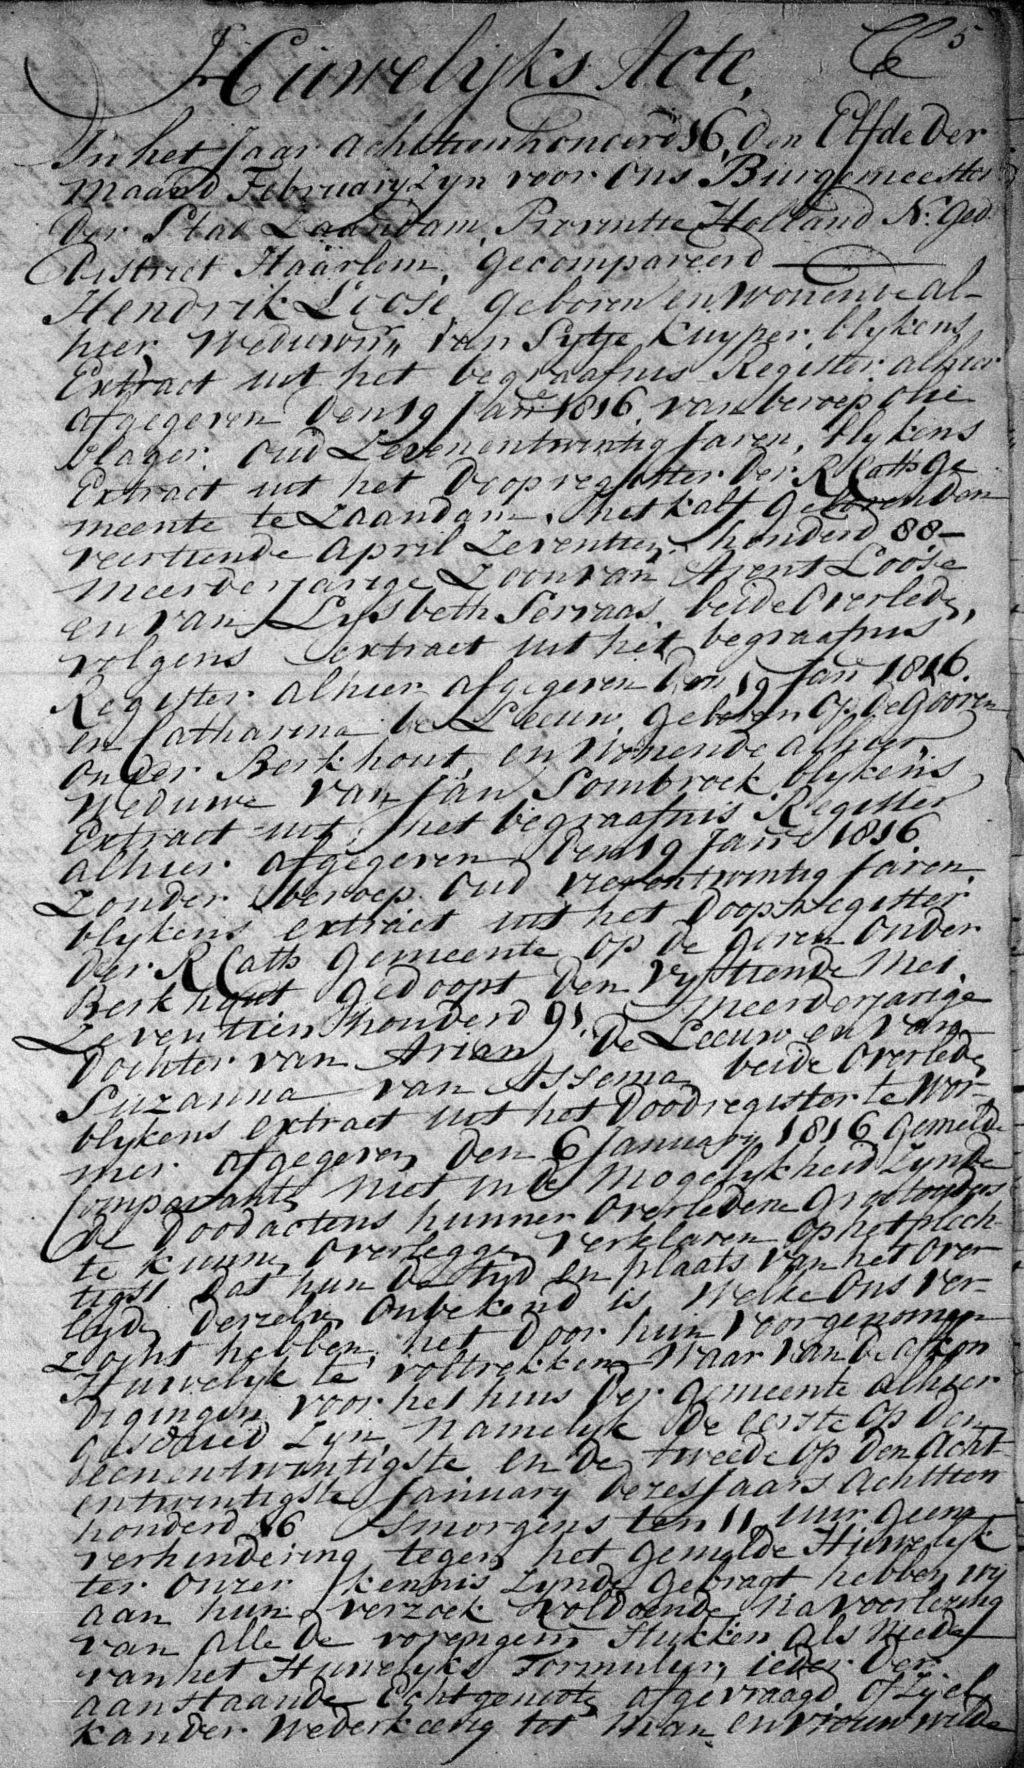 5
Huwelijks Acte,
In het Jaar achttienhonderd 16, den Elfde der
Maand February Zyn voor Ons Burgemeester
der Stad Zaandam, Provintie Holland N: Ged:
District Haarlem, gecompareerd
Hendrik Loose, geboren en wonende al-
hier, Weduwn: van Sytje Kuyper, blykens
Extract uit het begraafnis Register alhier
afgegeven den 19 Jan: 1816, van beroep olie
slager, oud Zevenentwintig Jaren, blykens
Extract uit het doopregister der R Cath Ge
meente te Zaandam, het kalf geboren den
veertiende April Zeventien honderd 88-
Meerderjarige Zoon van Arent Loose
en van Lysbeth Servaas, beide Overlede,
volgens extract uit het begraafnis
Register alhier afgegeven den 19 Jan: 1816.
en Catharina de Leeuw, geboren op de Gooren
onder Berkhout, en Wonende alhier,
Weduwe van Jan Sombroek blykens
Extract uit het begraafnis Register
alhier afgegeven den 19 Jan: 1816
Zonder beroep oud vierentwintig Jaren,
blykens extract uit het Doopregister
der R Cath Gemeente op de Goren onder
Berkhout gedoopt den Vyftiende Mei
Zeventien honderd 91, Meerderjarige
Dochter van Arian de Leeuw en van
Suzanna van Assema beide overlede,
blykens extract uit het Doodregister te Wor-
mer afgegeven den 6 January 1816 Gemelde
Comparante Niet in de Mogelykheid Zynde
de Doodactens hunner Overledene Grootouders
te kunne, overlegge, verklaren op het plech
tigst dat hun de tyd en plaats van het over
lyde, derzelve Onbekend is, Welke Ons ver-
zogt hebben, het door hun voorgenomen
Huwelyk te voltrekken, Waar van de afkon
digingen voor het huis der Gemeente alhier
geschied Zyn, Namelyk de eerste op den
eenentwintigste en de tweede op den Acht-
entwintigste January dezes Jaars Achttien
honderd 16 smorgens ten 11 uur geene
verhindering tegen het gemelde Huwelyk
ter onzer kennis Zynde gebragt hebben wij
aan hun verzoek voldoende Na voorlezing
van alle de vorengem: stukken als Mede
van het Huwelyks Formulier, ieder der
aanstaande Echtgenoote afgevraagd of Zy el
kander Wederkeerig tot Man en Vrouw wilde